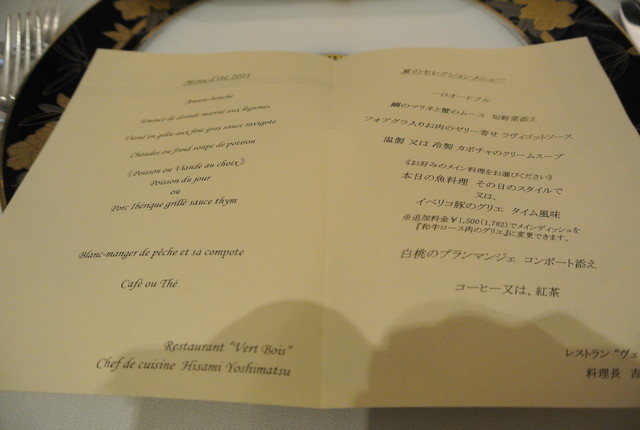 Menu d'été 2014
Amuse-bouche
Émincé de daurade mariné aux légumes
Viand en gelée aux foie gras sauce ravigote
Chaudes ou froid soupe de potiron
《Poisson ou Viande au choix》
Poisson du jour
ou
Porc Ibérique grillé sauce thym
Blanc-manger de pêche et sa compote
Café ou Thé
Restaurant "Vert Bois"
Chef de cuisine Hisami Yoshimatsu
夏のセレクションメニュー
一口オードブル
鯛のマリネと蟹のムース 旬野菜添え
フォアグラ入りお肉のゼリー寄せ ラヴィゴットソース
温製 又は 冷製 カボチャのクリームスープ
《お好みのメイン料理をお選びください》
本日の魚料理 その日のスタイルで
又は、
イベリコ豚のグリエ タイム風味
※追加料金¥1,500(1,782)でメインディッシュを
『和牛ロース肉のグリエ』に変更できます。
白桃のブランマンジェ コンポート添え
コーヒー又は、紅茶
レストラン "ヴェ
料理長 吉